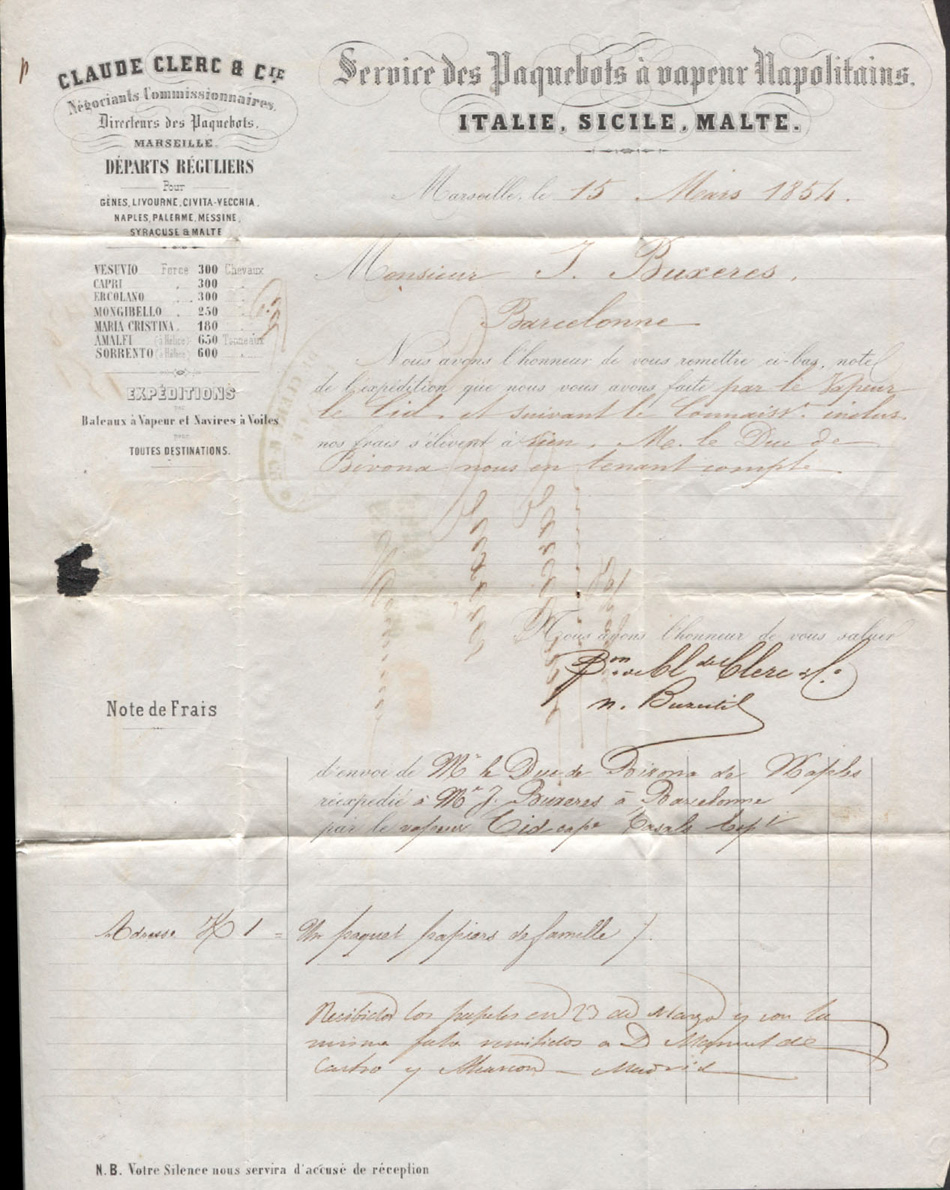 CLAUDE CLERC & CIE
Négociants Commissionnaires,
Directeurs des Paquebots.
MARSEILLE.
DÉPARTS RÉGULIERS
Pour
GÊNES, LIVOURNE, CIVITA-VECCHIA,
NAPLES, PALERME, MESSINE,
SYRACUSE & MALTE
VESUVIO Force 300 Chevaux
CAPRI " 300 "
ERCOLANO " 300 "
MONGIBELLO " 250 "
MARIA CRISTINA " 180 "
AMALFI (à Hélice) 650 Tonneaux
SORRENTO (à Hélice) 600 "
EXPÉDITIONS
par
Bateaux à Vapeur et Navires à Voiles
pour
TOUTES DESTINATIONS.
Service des Paquebots à vapeur Napolitains.
ITALIE, SICILE, MALTE.
Marseille, le 15 Mars 1854.
Monsieur J. Buxeres,
Barcelonne
Nous avons l'honneur de vous remettre ci-bas, note
de l'expédition que nous vous avons faite par le Vapeur
le Cid et suivant le Connaisst. inclus.
nos frais s'élèvent à rien. M. le Duc de
Bivona nous en tenant compte
Nous avons l'honneur de vous saluer
Pon de Cl. de Clerc & Co
n.
Note de Frais
d'envoi de Mr le Duc de Bivona de Naples
réexpédié à Mr J. Buxeres à Barcelonne
par le vapeur Cid cape Casals
Adresse 1 = Un paquet papiers de famille
Recibidos los papeles en 23 de Marzo y con la
misma fha remitidos a D Manuel de
Castro y Madrid
N.B. Votre Silence nous servira d'accusé de réception